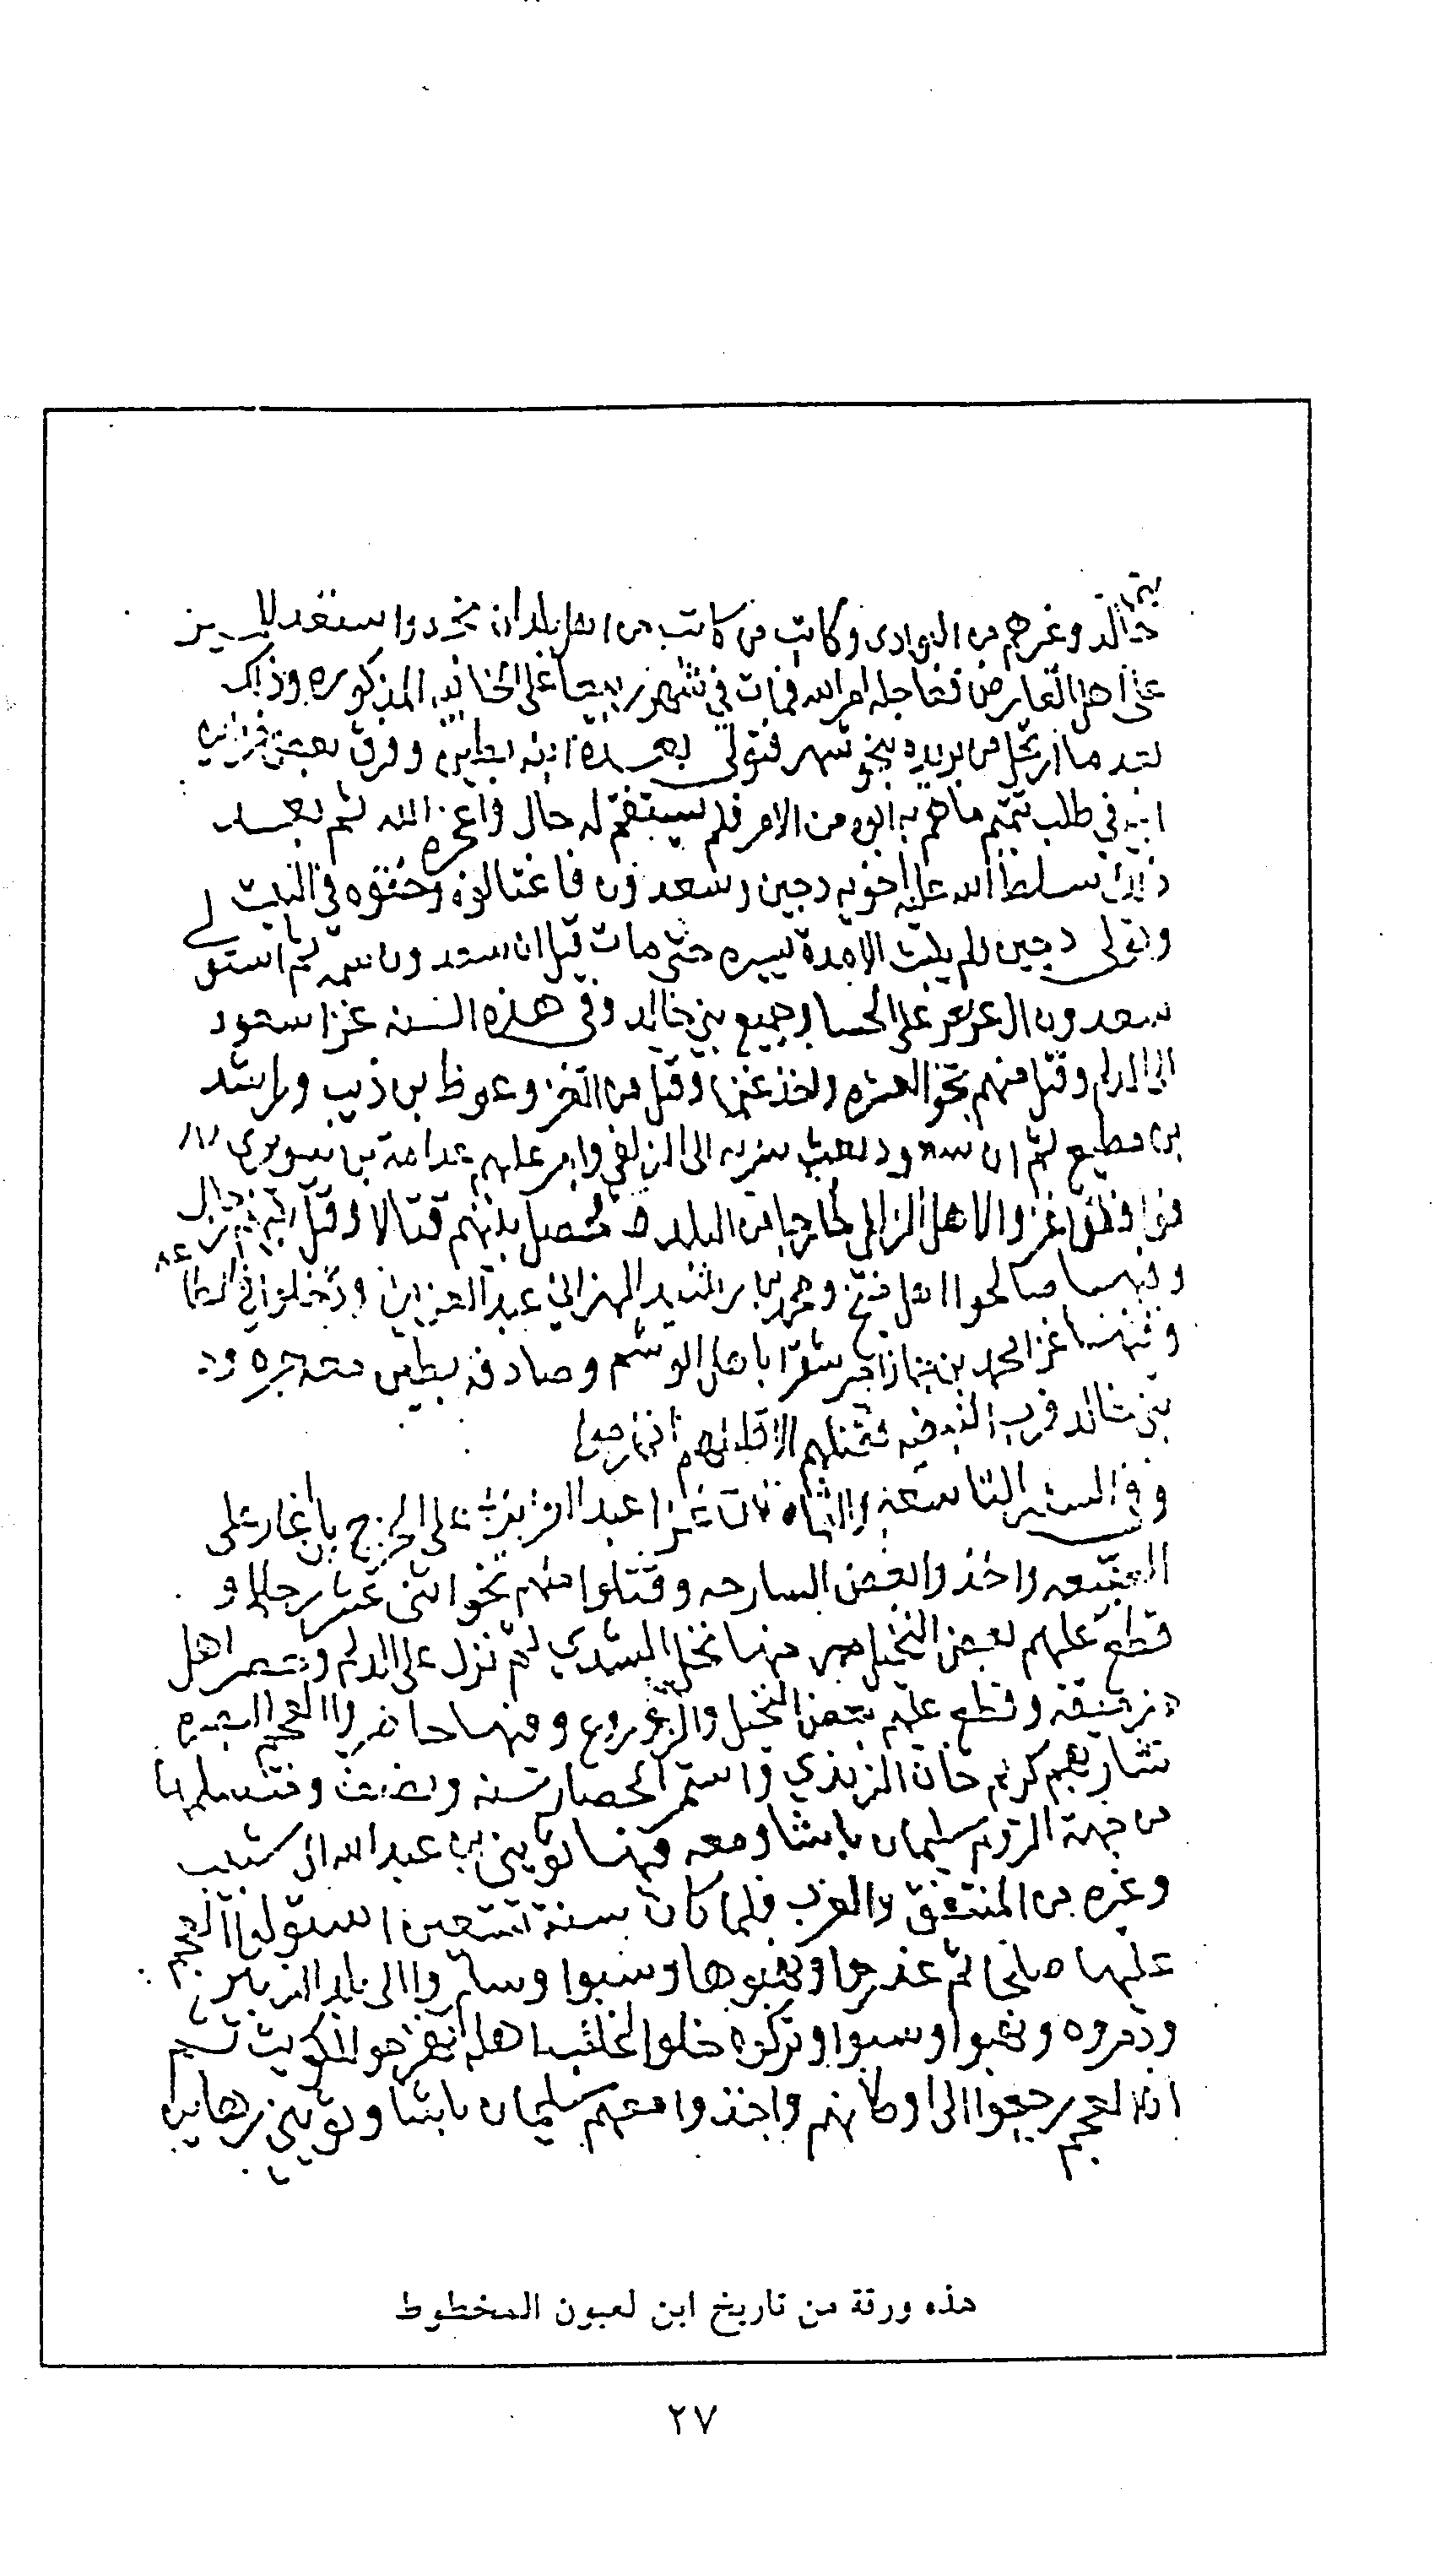 بني
خالد وغيرهم من البوادي وكاتب من كاتب من اهل بلدان نجد واستعد
على اهل العارض فعاجله امر الله فمات في شهور ربيعا على الخابيه المذكوره وذلك
بعد ما ارتحل من بريده بنحو شهر فتولى بعده ابنه بطين وفرق بعض خزاين
ابيه في طلب تتميم ما هم به ابوه من الامر فلم يستقم له حال واعجزه الله ثم بعد
ذلك سلط الله عليه اخويه دجين وسعدون فاغتالوه وخنقوه في البيت
وتولى دجين ولم يلبث الا مدة يسيره حتى مات قيل ان سعدون سمه ثم استولى
سعدون ال عريعر على الحسا وجميع بني خالد وفي هذه السنه غزا سعود
الى الدلم وقتل منهم نحو العشره واخذ غنما وقتل من الغزو عوظ بن ذيب وراشد
بن مطيع ثم ان سعود بعث سريه الى الزلفي وامر عليهم عدامة بن سويري
فوافقوا غزوا لاهل الزلفي خارجا من البلد فحصل بينهم قتالا وقتل رجال
وفيها صالحوا اهل وحمد بن راشد الهزاني عبد العزيز ودخلوا في الطاعه
وفيها غزا محمد بن جماز امير شقرا باهل الوشم وصادفه بطين معه جردة
بني خالد قرب النبقيه فقتلهم الا قليل منهم انهزموا
وفي السنه التاسعه والثمانون غزا عبد العزيز على الخرج بان اغار على
الضبيعه واخذوا بعض السارحه وقتلوا منهم نحو اثني عشر رجلا و
قطع عليهم بعض النخيل منها نخل الشدي ثم نزل على الدلم وحصر اهل
زميقه وقطع عليهم بعض النخيل والزروع وفيها حاصروا العجم البصره
كريم خان الزندي واستمر الحصار سنه ونصف
من جهة الروم سليمان باشا ومعه فيها ثويني بن عبد الله ال شبيب
وغيره من المنتفق والعرب فلما كان سنة تسعين استولوا العجم
عليها صلحا ثم غدروا ونهبوها وسبوا وساروا الى بلد الزبير
ودمروه ونهبوا وسبوا وتركوه اهله الكويت ثم
ان العجم رجعوا الى اوطانهم واخذوا معهم سليمان باشا وثويني رهاين
هذه ورقة من تاريخ ابن لعبون المخطوط
٢٧